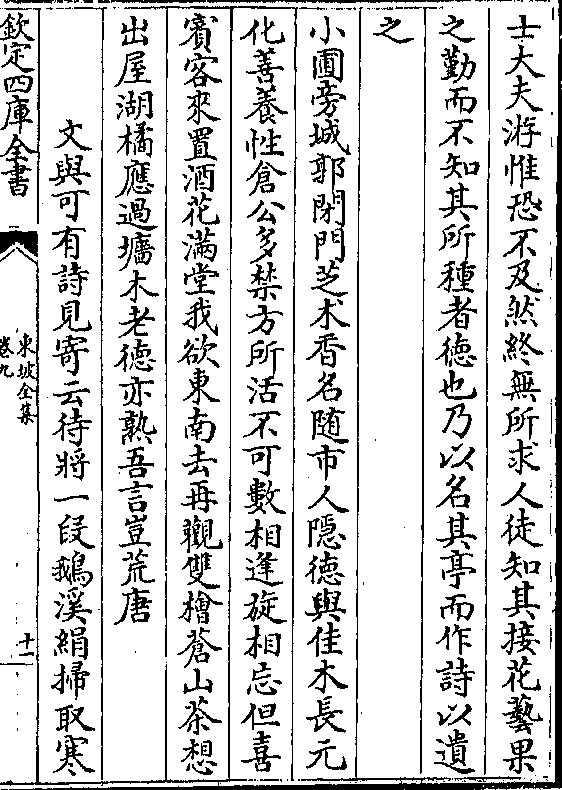 士大夫游惟恐不及然終無所求人徒知其接花藝果
之勤而不知其所種者徳也乃以名其亭而作詩以遺
之
小圃旁城郭閉門芝术香名随市人隠徳與佳木長元
化善養性倉公多禁方所活不可數相逢旋相忘但喜
賓客來置酒花滿堂我欲東南去再觀雙檜蒼山茶想
出屋湖橘應過墻木老徳亦熟吾言豈荒唐
文與可有詩見寄云待將一叚鵝溪絹掃取寒
欽定四庫全書
東坡全集
卷九
十一